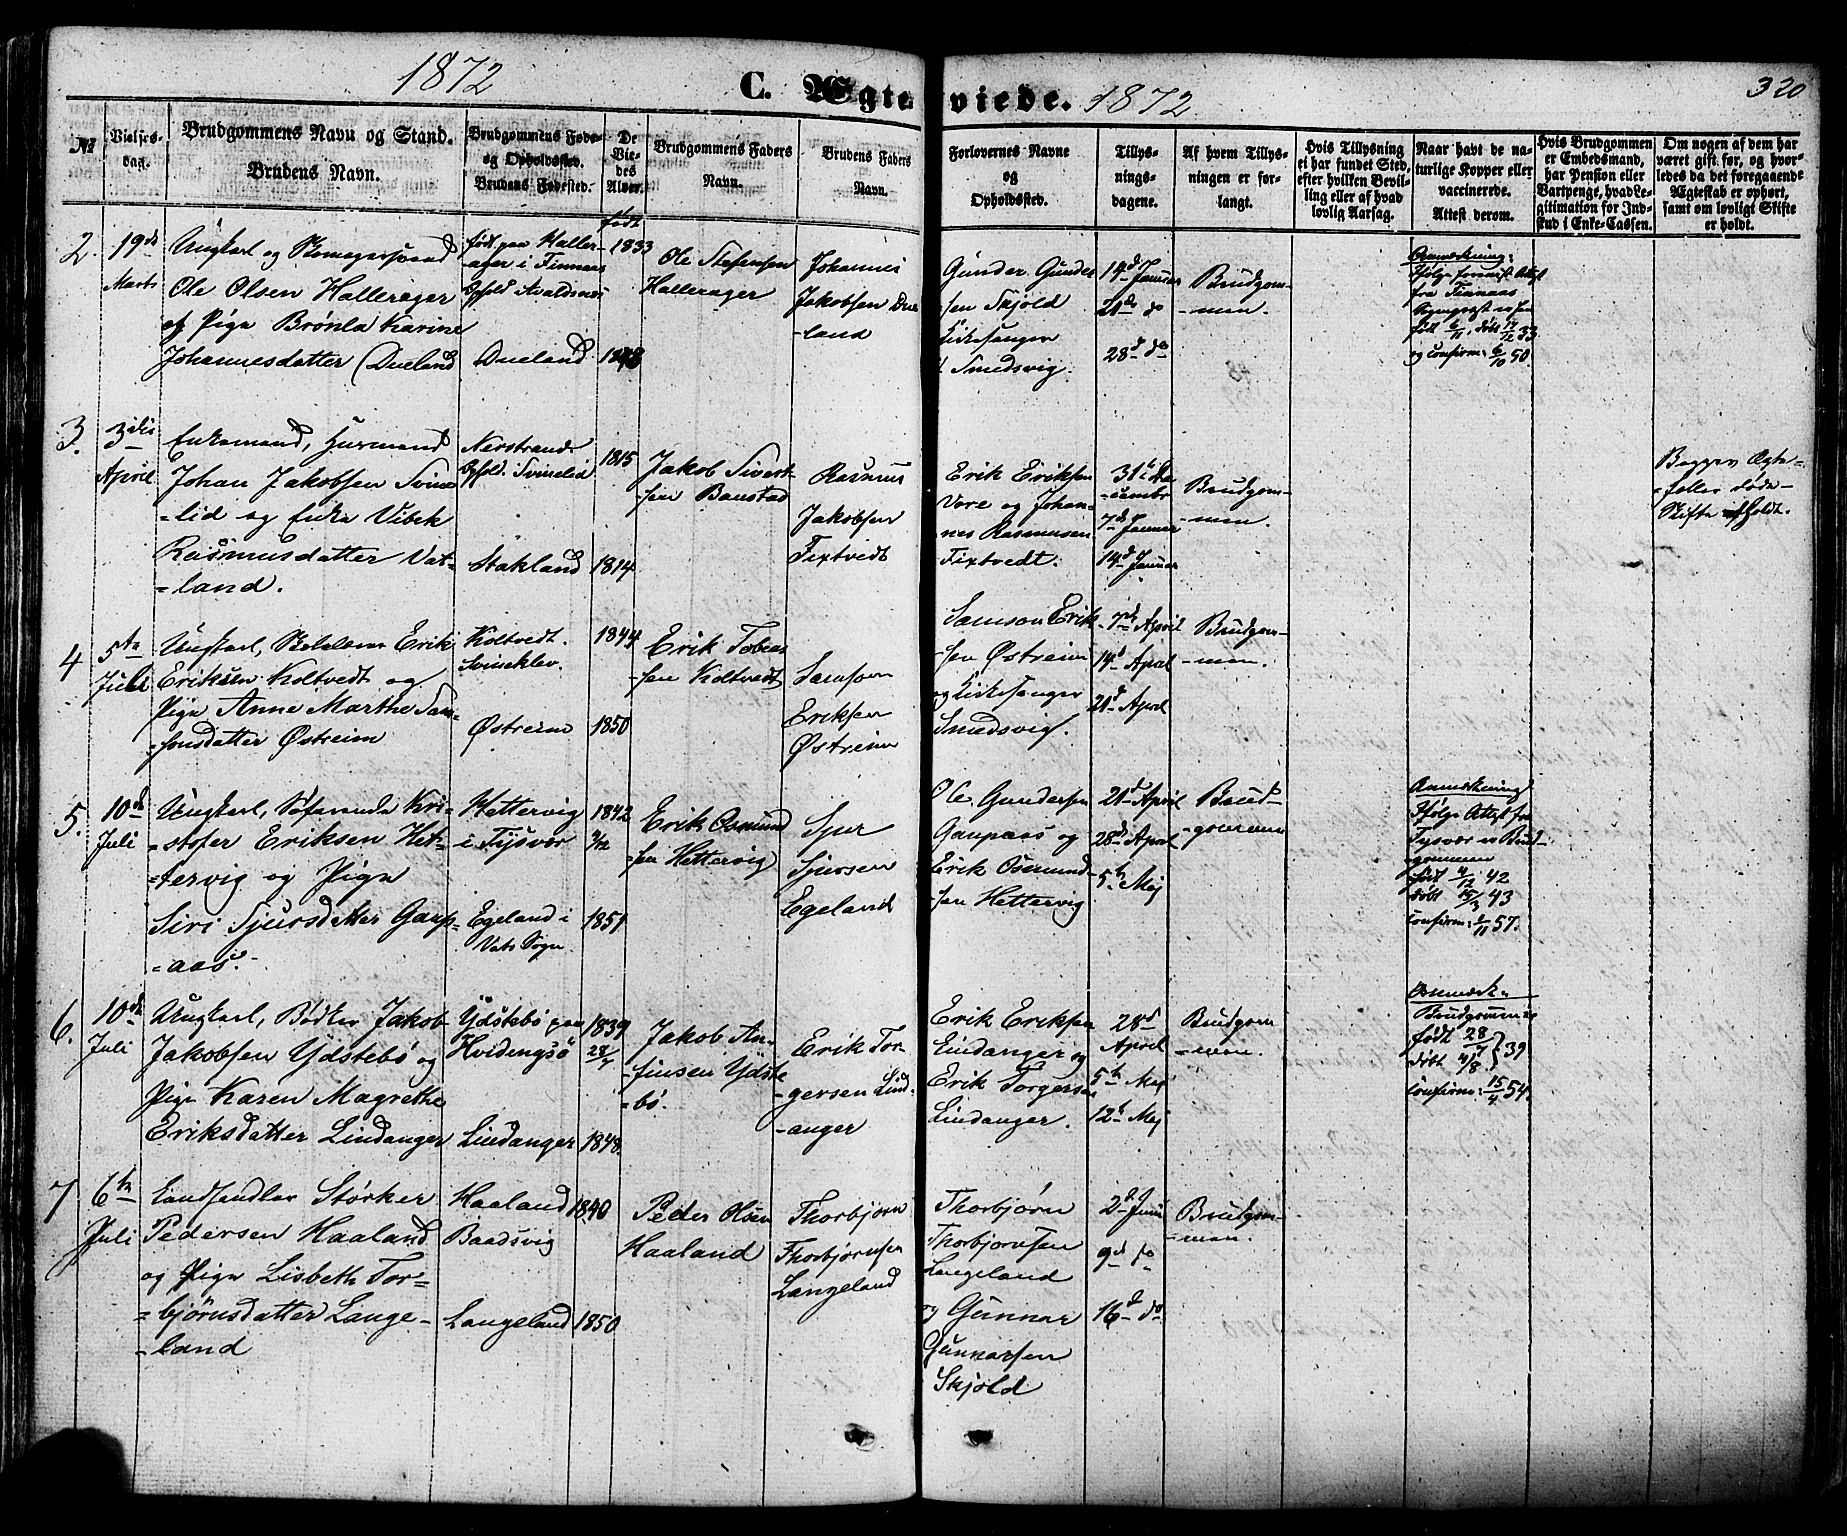 1872
C. Ægteviede.
1872
320
No
Vielses-
dag.
Brudgommens Navn og Stand.
Brudens Navn.
Brudgommens Føde-
og Opholdssted.
Brudens Fødested.
De
Vie-
des
Alder.
Brudgommens Faders
Navn.
Brudens Faders
Navn.
Forlovernes Navne
og
Opholdssted.
Tillys-
nings-
dagene.
Af hvem Tillys-
ningen er for-
langt.
Hvis Tillysning
ei har fundet Sted,
efter hvilken Bevil-
ling eller af hvad
lovlig Aarsag.
Naar havt de na-
turlige Kopper eller
vaccinerede.
Attest derom.
Hvis Brudgommen
er Embedsmand,
har Pension eller
Vartpenge, hvad Le-
gitimation for Ind-
skud i Enke-Cassen.
Om nogen af dem har
været gift før, og hvor-
ledes da det foregaaende
Ægteskab er ophørt,
samt om lovligt Skifte
er holdt.
2.
19de
Marts
Ungkarl og
Ole Olsen Hallerager
Pige Brønla Karine
Johannesdatter Dueland
født paa Haller-
ager i Finnaas
Ophold Avaldsnes
Dueland
født
1833
1848
Ole Stefensen
Hallerager
Johannes
Jakobsen Due
-land
Gunder Gunder
-sen Skjold
Kirkesanger
Smedsvig.
14d Januar
21de do
28d do
Brudgom-
-men.
Anmærkning:
Ifølge Attest
fra Finnaas
født 6/11, døbt 17/12 33
og confirm: 6/10 50.
3.
3die
April
Enkemand, Husmand
Johan Jakobsen Svine
-lid og Enke Vibek
Rasmusdatter Vat-
-land.
Nerstrand
Ophold. Svinelid
Stakland
1815
1814
Jakob Sivert-
-sen Baustad
Rasmus
Jakobsen
Fixtvedt
Erik Eriksen
Vore og Johan-
nes Rasmusen
Fixtvedt.
31te De
-cember
7de Januar
14d Januar
Brudgom-
-men.
Begges Ægte-
-feller døde-
Skifte afholdt.
4
5te
Juli
Ungkarl, Erik
Eriksen Koltvedt og
Pige Anne Marthe Sam-
-sonsdatter Østreim
Koltvedt.
Svineklev.
Østreim
1844
1850
Erik Tobias
-sen Koltvedt
Samson
Eriksen
Østreim
Samson Erik-
-sen Østreim
og Kirkesanger
Smedsvig.
7de April
14d April
21d April
Brudgom-
-men.
5.
10de
Juli
Ungkarl, Søfarende Kri-
-stofer Eriksen Het-
-tervig og Pige
Siri Sjursdatter Gaup-
-aas.
Hettervig
i Tysvær
Egeland i
Vats Sogn
1842
4/12
1851
Erik Osmund
-sen Hettervig
Sjur
Sjursen
Egeland
Ole Gundersen
Gaupaas og
Erik Osmund
-sen Hettervig
21d April
28de April
5te Mej
Brud-
gommen
Anmærkning
Ifølge Attest fra
Tysvær er Brud-
gommen
født 4/12 42
døbt 15/3 43
confirm: 1/11 57.
6.
10de
Juli
Ungkarl, Bødker Jakob
Jakobsen Ydstebø og
Pige Karen Magrethe
Eriksdatter Lindanger
Ydstebø paa
Hvidengsø
Lindanger
1839
28/7
1848.
Jakob An-
finsen Ydste
-bø.
Erik Tor-
-gersen Lind-
-anger
Erik Eriksen
Lindanger og
Erik Torgersen
Lindanger.
28d
April
5te Mej
12te Mej
Brudgom
-men.
Anmærk-
Brudgommen er
født 28/7
døbt 4/8 } 39
confirm: 15/4 54.
7
6te
Juli
Landhandler Størker
Pedersen Haaland
og Pige Lisbeth Tor-
-bjørnsdatter Lange-
-land
Haaland
Baadsvig
Langeland
1840
1850
Peder Olsen
Haaland
Thorbjørn
Thorbjørnsen
Langeland
Thorbjørn
Thorbjørnsen
Langeland
og Gunnar
Gunnarsen
Skjold
2d Juni
9d do
16d do
Brudgom-
-men.